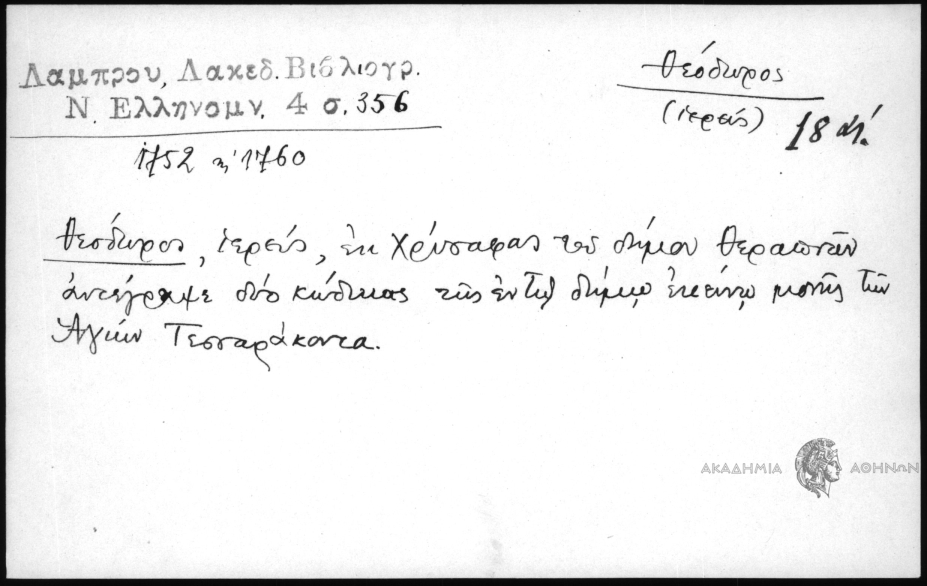 Λαμπρου, Λακεδ. Βιβλιογρ.
Ν. Ελληνομν. 4 σ. 356
1752 ἢ 1760
Θεόδωρος
(ἱερεύς)
18 αἰ.
Θεόδωρος, ἱερεύς, ἐκ Χρύσαφας τοῦ δήμου Θεραπνῶν
ἀντέγραψε δύο κώδικας τῆς ἐν τῷ δήμῳ ἐκείνῳ μονῆς τῶν
Ἁγίων Τεσσαράκοντα.
ΑΚΑΔΗΜΙΑ ΑΘΗΝΩΝ